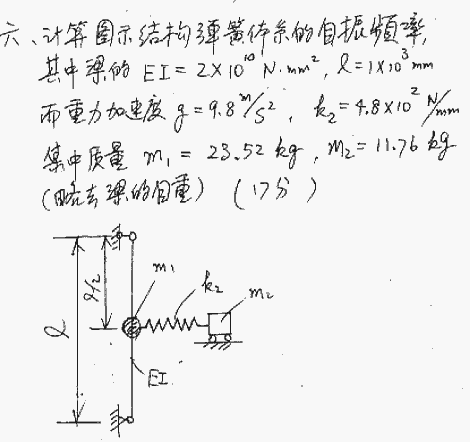 六、计算图示结构弹簧体系的自振频率,
其中梁的 EI=2×10¹⁰ N·mm², l=1×10³ mm
而重力加速度 g=9.8 m/s², k₂=4.8×10² N/mm
集中质量 m₁=23.52 kg, m₂=11.76 kg
(略去梁的自重) (17分)
m₁
k₂
m₂
l/2
l
EI